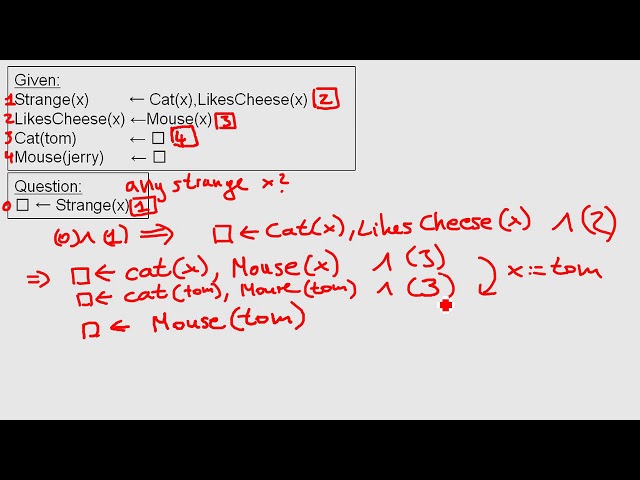 Given:
1 Strange(x) ← Cat(x),LikesCheese(x) 2
2 LikesCheese(x) ←Mouse(x) 3
3 Cat(tom) ← □ 4
4 Mouse(jerry) ← □
Question:
any strange x?
0 □ ← Strange(x) 1
(0)∧(1) ⇒ □ ← Cat(x), Likes Cheese(x) ∧ (2)
⇒ □ ← cat(x), Mouse(x) ∧ (3)
x:=tom
□ ← cat(tom), Mouse(tom) ∧ (3)
□ ← Mouse(tom)